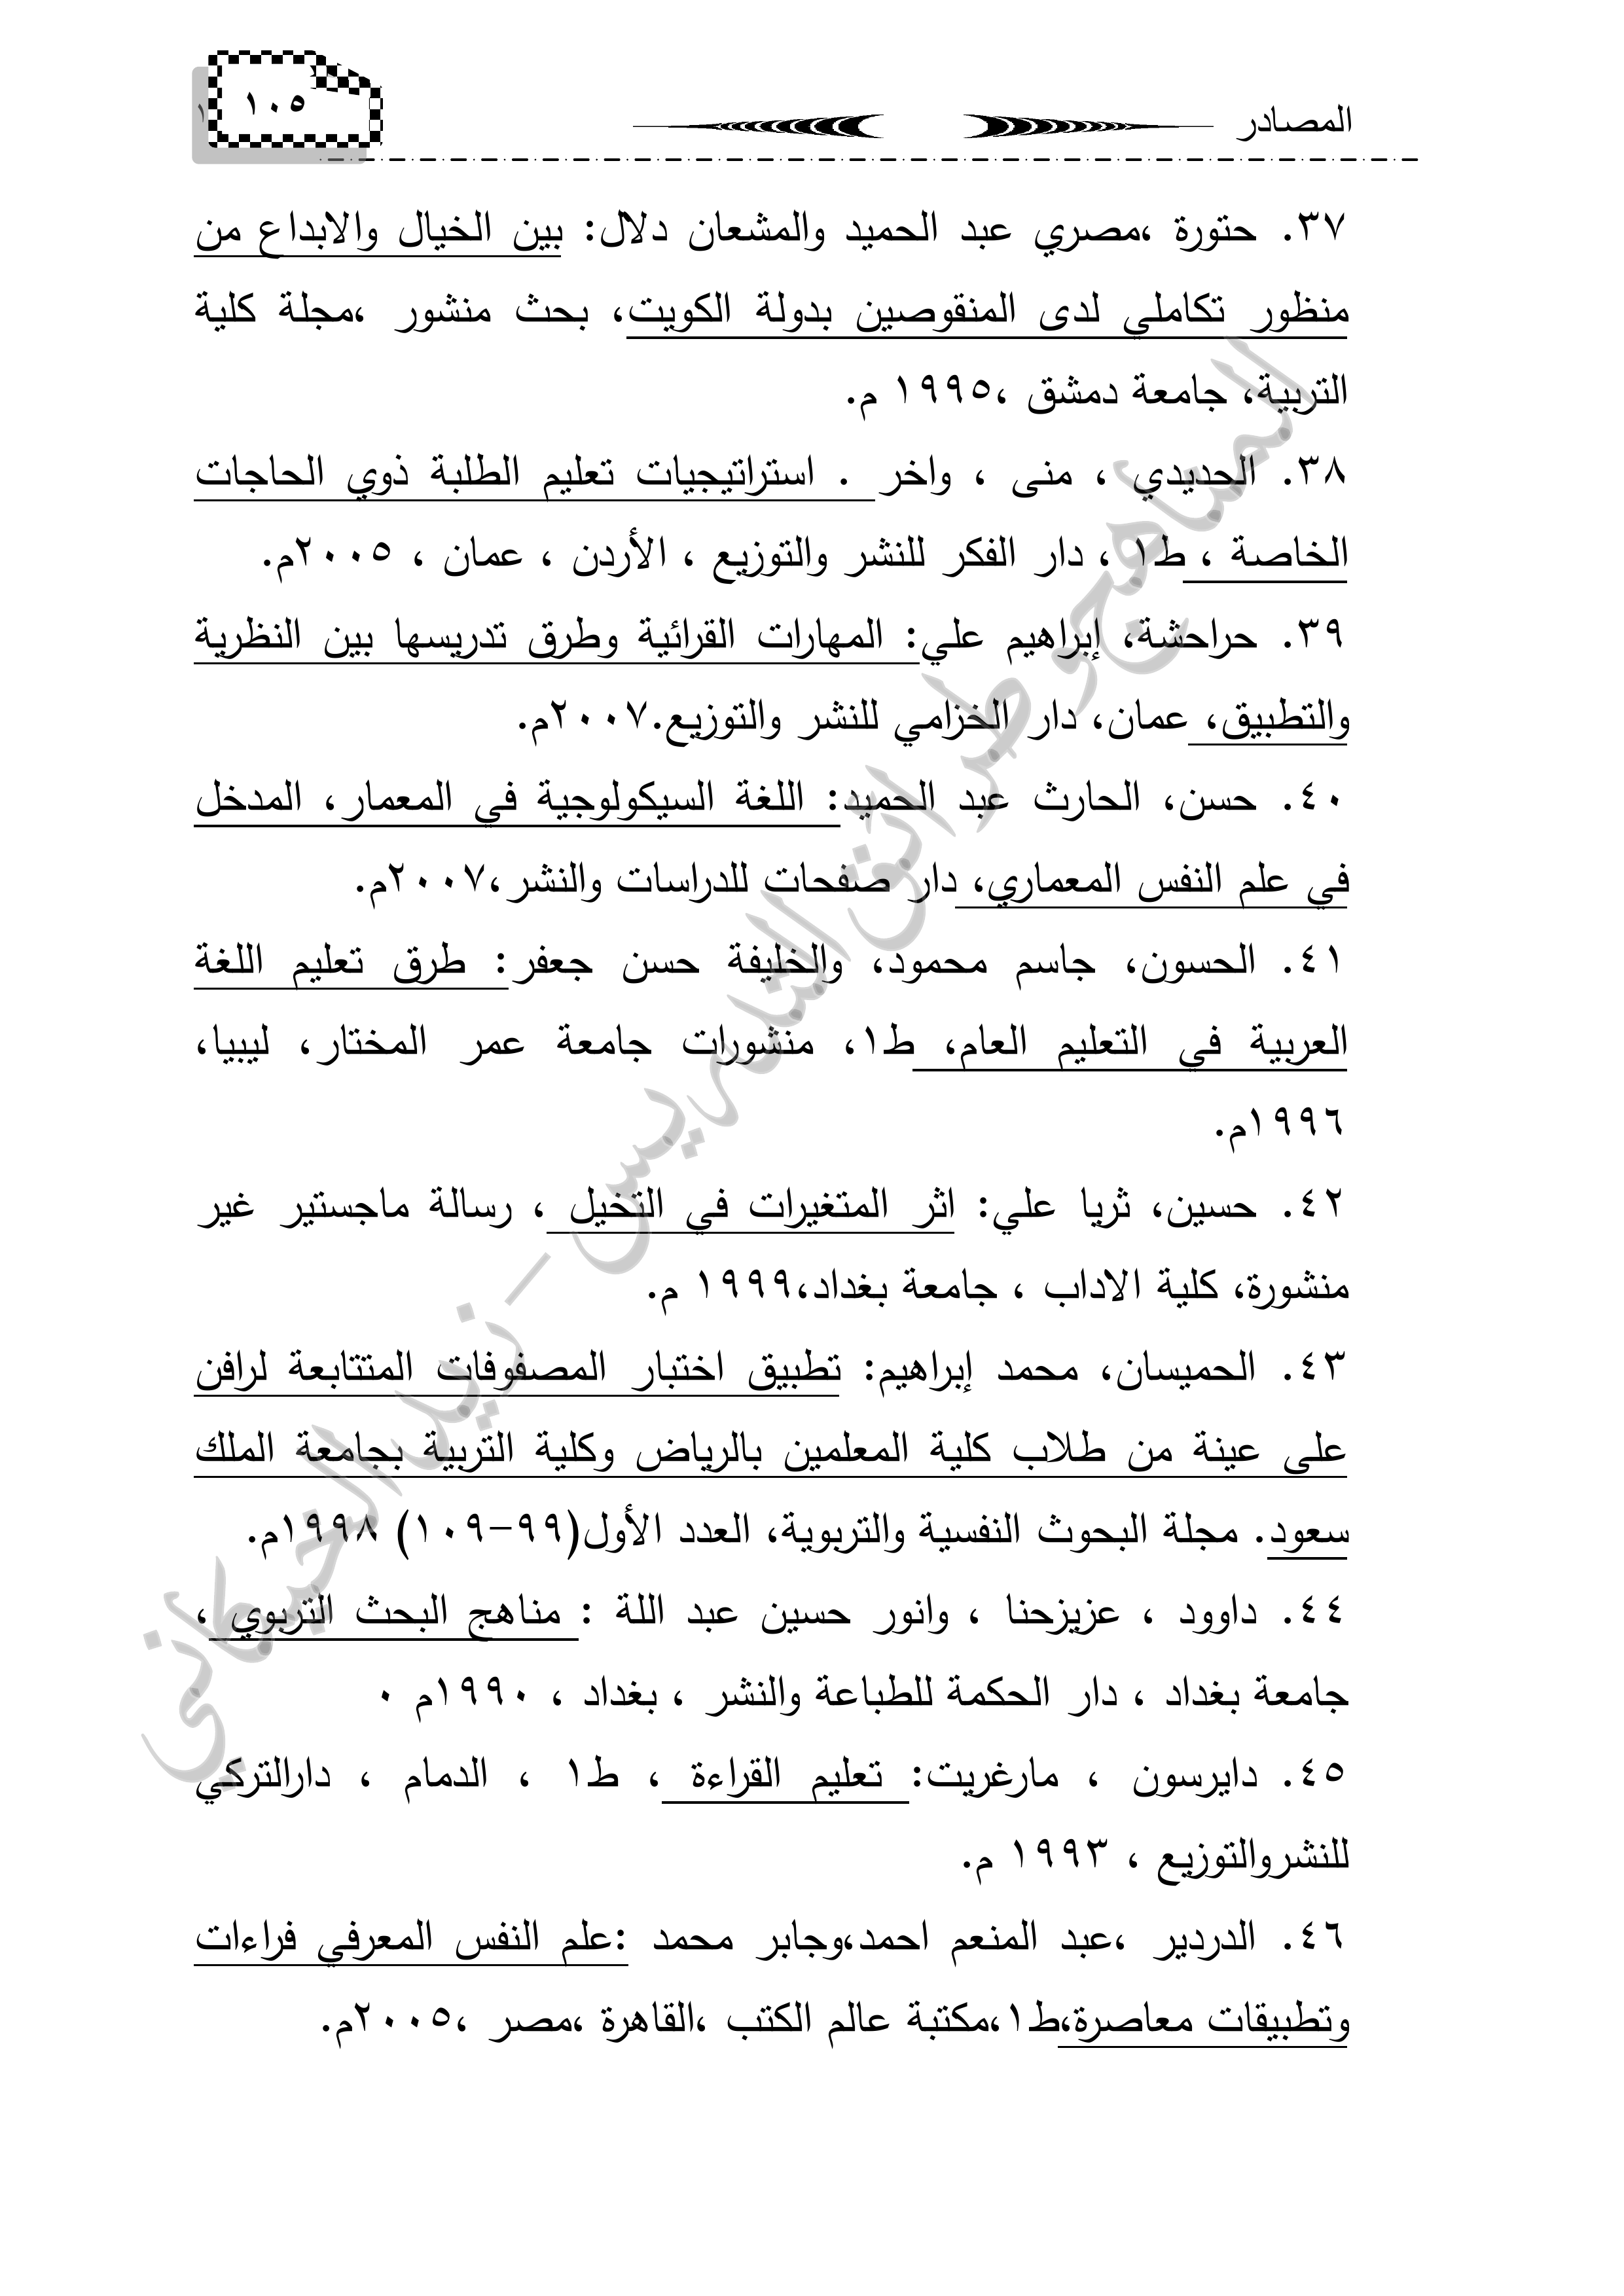 المصادر
١٠٥
٣٧. حتورة ،مصري عبد الحميد والمشعان دلال: بين الخيال والابداع من
منظور تكاملي لدى المنقوصين بدولة الكويت، بحث منشور ،مجلة كلية
التربية، جامعة دمشق ،١٩٩٥ م.
٣٨. الحديدي ، منى ، واخر . استراتيجيات تعليم الطلبة ذوي الحاجات
الخاصة ، ط١ ، دار الفكر للنشر والتوزيع ، الأردن ، عمان ، ٢٠٠٥م.
٣٩. حراحشة، إبراهيم علي: المهارات القرائية وطرق تدريسها بين النظرية
والتطبيق، عمان، دار الخزامي للنشر والتوزيع.٢٠٠٧م.
٤٠. حسن، الحارث عبد الحميد: اللغة السيكولوجية في المعمار، المدخل
في علم النفس المعماري، دار صفحات للدراسات والنشر،٢٠٠٧م.
٤١. الحسون، جاسم محمود، والخليفة حسن جعفر: طرق تعليم اللغة
العربية في التعليم العام، ط١، منشورات جامعة عمر المختار، ليبيا،
١٩٩٦م.
٤٢. حسين، ثريا علي: اثر المتغيرات في التخيل ، رسالة ماجستير غير
منشورة، كلية الاداب ، جامعة بغداد،١٩٩٩ م.
٤٣. الحميسان، محمد إبراهيم: تطبيق اختبار المصفوفات المتتابعة لرافن
على عينة من طلاب كلية المعلمين بالرياض وكلية التربية بجامعة الملك
سعود. مجلة البحوث النفسية والتربوية، العدد الأول(٩٩-١٠٩) ١٩٩٨م.
٤٤. داوود ، عزيزحنا ، وانور حسين عبد اللة : مناهج البحث التربوي ،
جامعة بغداد ، دار الحكمة للطباعة والنشر ، بغداد ، ١٩٩٠م ٠
٤٥. دايرسون ، مارغريت: تعليم القراءة ، ط١ ، الدمام ، دارالتركي
للنشروالتوزيع ، ١٩٩٣ م.
٤٦. الدردير ،عبد المنعم احمد،وجابر محمد :علم النفس المعرفي فراءات
وتطبيقات معاصرة،ط١،مكتبة عالم الكتب ،القاهرة ،مصر ،٢٠٠٥م.
المناهج وطرائق التدريس - زيد الخيكاني